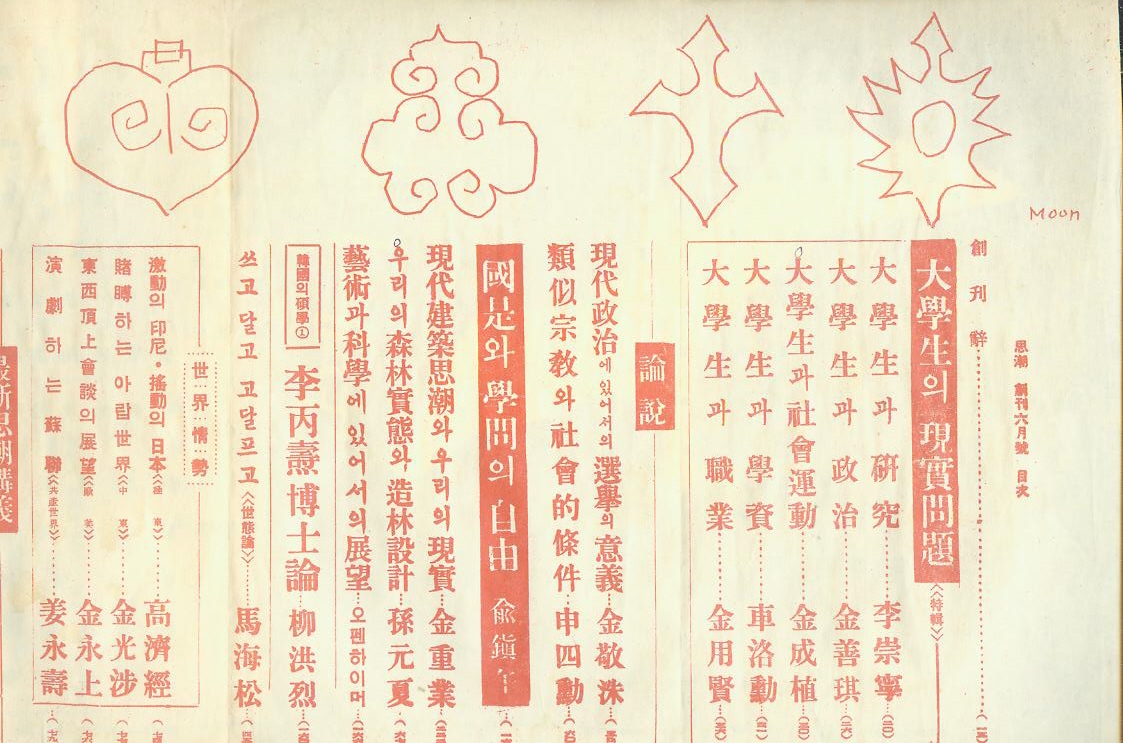 Moon
思潮 創刊六月號 目次
創刊辭
大學生의 現實問題《特輯》
大學生과 硏究 李崇寧
大學生과 政治 金善琪
大學生과 社會運動 金成植
大學生과 學資 車洛勳
大學生과 職業 金用賢
論說
現代政治에 있어서의 選擧의 意義 金敬洙
類似宗敎와 社會的條件 申四勳
國是와 學問의 自由 兪鎭午
現代建築思潮와 우리의 現實 金重業
우리의 森林實態와 造林設計 孫元夏
藝術과 科學에 있어서의 展望 오펜하이머
韓國의 碩學① 李丙燾博士論 柳洪烈
쓰고 달고 고달프고《世態論》 馬海松
世界情勢
激動의 印尼·搖動의 日本《極東》 高濟經
賭博하는 아랍世界《中東》 金光涉
東西頂上會談의 展望《歐美》 金永上
演劇하는 蘇聯《共產世界》 姜永壽
最新思潮講義